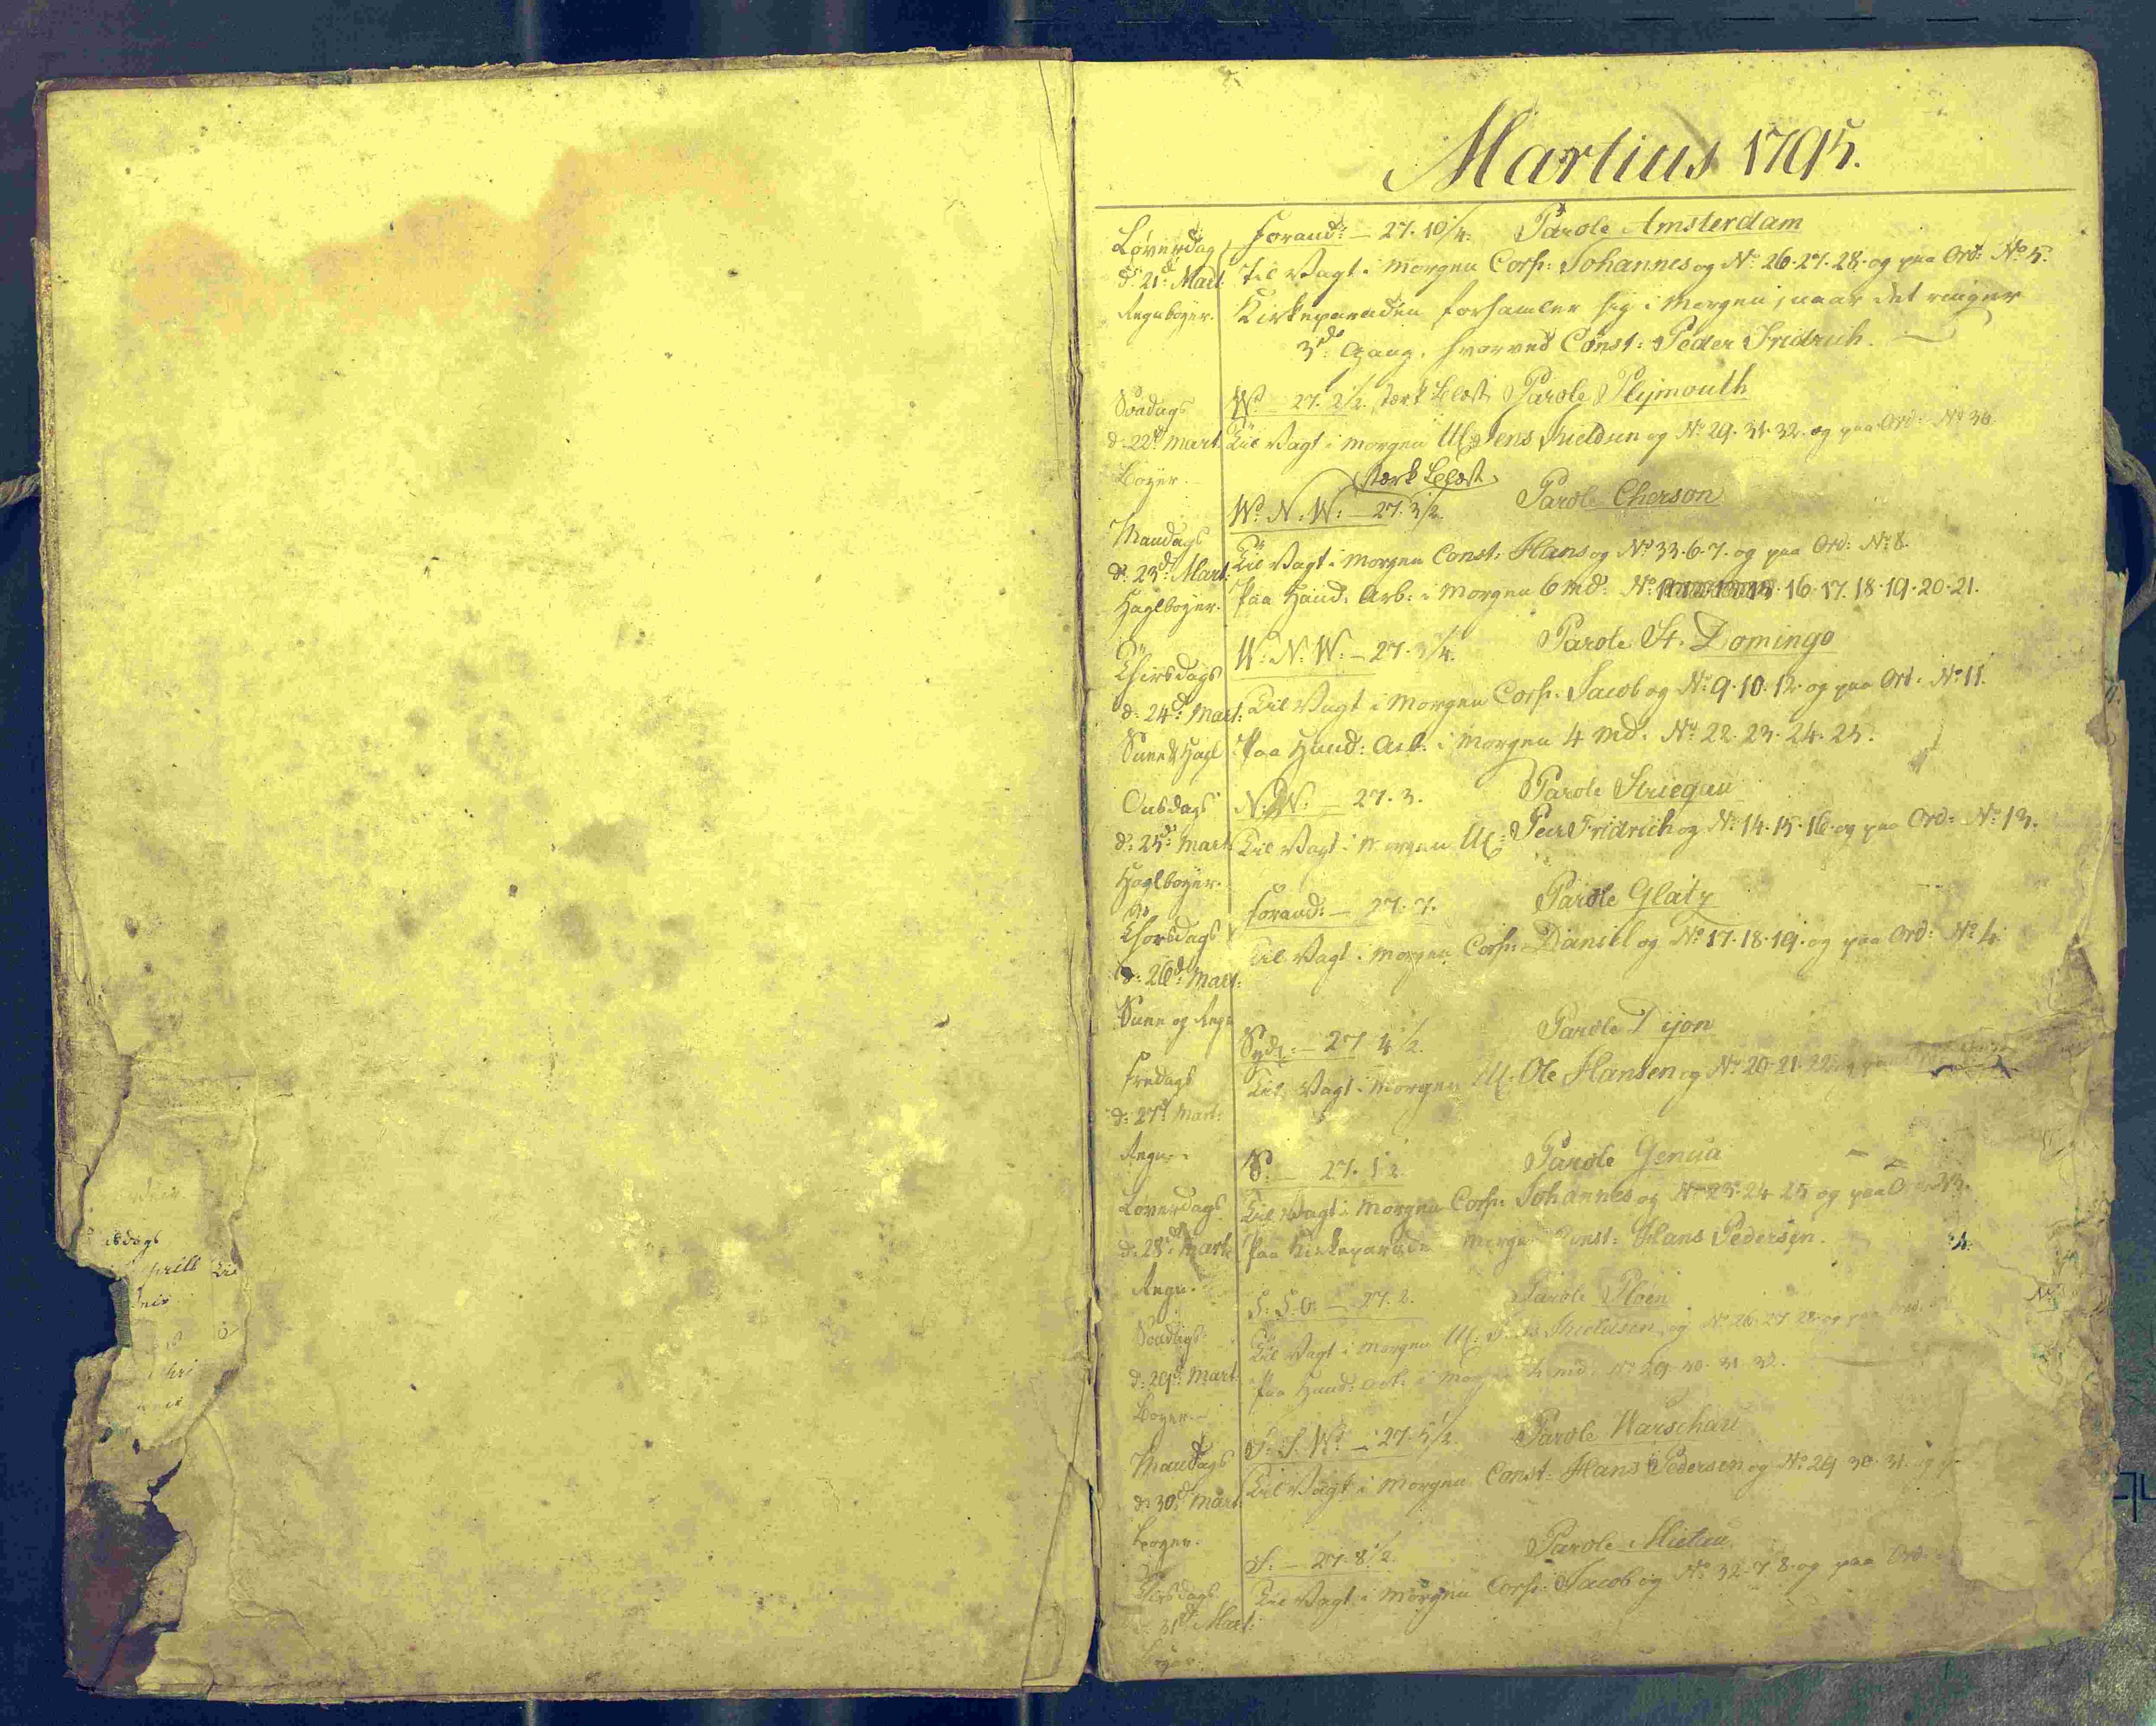 isdags
prill
Martius 1795.
Løverdag
d: 21de Mart:
Regnbøyer.
forand: — 27. 10 1/4. Parole Amsterdam
Til Vagt i Morgen Corp: Johannes og No 26. 27. 28. og paa Ord: No 5.
Kirkeparaden forsamler sig i Morgen, naar det ringer
3de Gang, hvorved Const: Peder Fridrich. —
Søndags
d: 22de Mart:
Bøyer.
W: 27. 2 1/2. stærk Blæst Parole Plymouth
Til Vagt i Morgen U: Jens Nieldsen og No 29. 31. 32. og paa Ord: No 30.
Mandags
d: 23de Mart:
Haglbøyer.
stærk Blæst
W: N: W: — 27. 3 1/2. Parole Cherson
Til Vagt i Morgen Const: Hans og No 33. 6. 7. og paa Ord: No 8.
Paa Haand: Arb: i Morgen 6 Md: No 16. 17. 18. 19. 20. 21.
Thirsdags
d: 24de Mart:
Snee & Hagl
W: N: W: — 27. 3 1/4. Parole St. Domingo
Til Vagt i Morgen Corp: Jacob og No 9. 10. 12. og paa Ord: No 11.
Paa Haand: Arb: i Morgen 4 Md: No 22. 23. 24. 25.
Onsdags
d: 25de Mart:
Haglbøyer.
N: W: — 27. 3. Parole Striegau
Til Vagt i Morgen U: Peer Fridrich og No 14. 15. 16. og paa Ord: No 13.
Thorsdags
d: 26de Mart:
Snee og Regn
forand: — 27. 7. Parole Glatz
Til Vagt i Morgen Corp: Daniel og No 17. 18. 19. og paa Ord: No 4.
Fredags
d: 27de Mart:
Regn.
Syd: — 27 4 1/2. Parole Dijon
Til Vagt i Morgen U: Ole Hansen og No 20. 21. 22. og paa
Løverdags
d: 28de Mart:
Regn.
S: — 27. 1 2. Parole Genua
Til Vagt i Morgen Corp: Johannes og No 23. 24 25 og paa
Paa Kirkeparade Morgen Const: Hans Pedersen.
Søndags
d: 29de Mart:
Bøyer.
S: S: O: — 27. 2. Parole Ploen
Til Vagt i Morgen U: Nieldsen og No 26. 27 28. og paa Ord:
Paa Haand: Arb: i Morgen 4 Md: No 29. 30. 31. 32.
Mandags
d: 30de Mart:
Bøyer.
S: S: W: — 27. 5 1/2. Parole Warschau
Til Vagt i Morgen Const: Hans Pedersen og No 29 30. 31. og
Thirsdags
31de Mart:
Bøyer.
S: — 27. 8 1/2. Parole Mietau
Til Vagt i Morgen Corp: Jacob og No 32. 7. 8. og paa Ord: